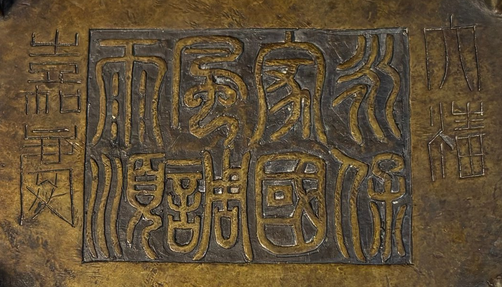 大清
永保
家國
風調
雨順
嘉慶